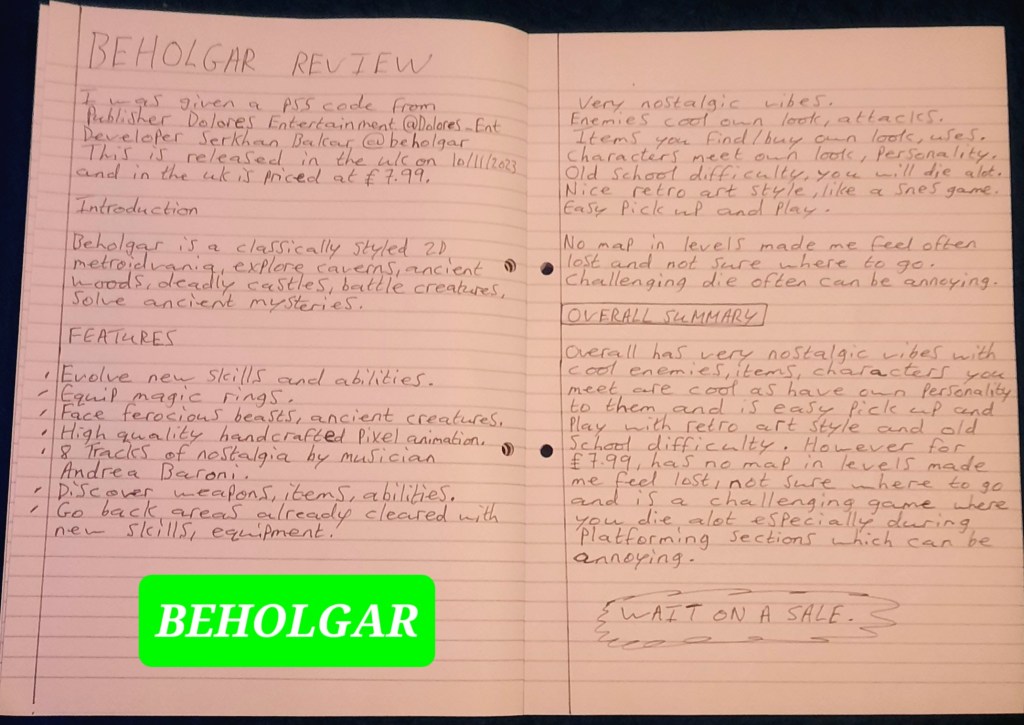 BEHOLGAR REVIEW
I was given a PS5 code from
Publisher Dolores Entertainment @Dolores_Ent
Developer Serkhan Bakar @beholgar
This is released in the uk on 10/11/2023
and in the uk is priced at £7.99.
Introduction
Beholgar is a classically styled 2D
metroidvania, explore caverns, ancient
woods, deadly castles, battle creatures,
solve ancient mysteries.
FEATURES
Evolve new skills and abilities.
Equip magic rings.
Face ferocious beasts, ancient creatures.
High quality handcrafted Pixel animation.
8 Tracks of nostalgia by musician
Andrea Baroni.
Discover weapons, items, abilities.
Go back areas already cleared with
new skills, equipment.
BEHOLGAR
Very nostalgic vibes.
Enemies cool own look, attacks.
Items you find/buy own look, uses.
Characters meet own look, Personality.
Old School difficulty, you will die alot.
Nice retro art style, like a snes game.
Easy Pick up and Play.
No map in levels made me feel often
lost and not sure where to go.
Challenging die often can be annoying.
OVERALL SUMMARY
Overall has very nostalgic vibes with
cool enemies, items, characters you
meet are cool as have own Personality
to them, and is easy Pick up and
Play with retro art style and old
School difficulty. However for
£7.99, has no map in levels made
me feel lost, not sure where to go
and is a challenging game where
you die alot especially during
Platforming sections which can be
annoying.
WAIT ON A SALE.